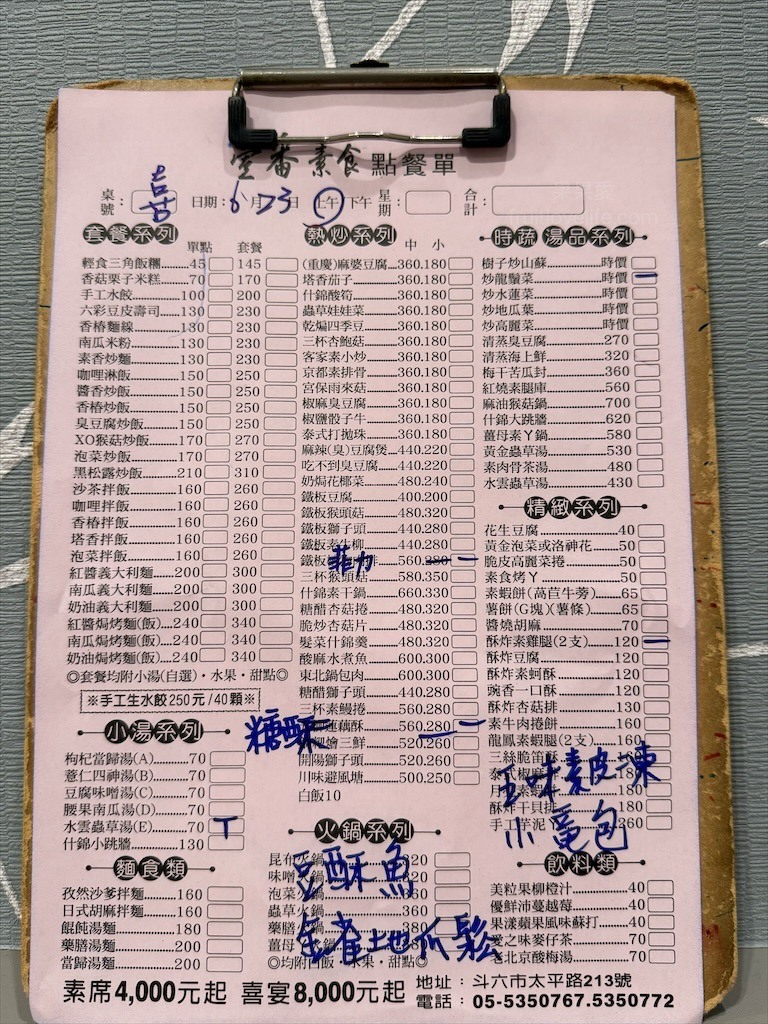 壹番素食 點餐單
桌號： 喜 日期： 6 月 23 日 上午/下午 星期： 合計：
套餐系列 單點 套餐
輕食三角飯糰......45 145
香菇栗子米糕......70 170
手工水餃......100 200
六彩豆皮壽司......130 230
香椿麵線......130 230
南瓜米粉......130 230
素香炒麵......130 230
咖哩淋飯......150 250
醬香炒飯......150 250
香椿炒飯......150 250
臭豆腐炒飯......150 250
XO猴菇炒飯......170 270
泡菜炒飯......170 270
黑松露炒飯......210 310
沙茶拌飯......160 260
咖哩拌飯......160 260
香椿拌飯......160 260
塔香拌飯......160 260
泡菜拌飯......160 260
紅醬義大利麵......200 300
南瓜義大利麵......200 300
奶油義大利麵......200 300
紅醬焗烤麵(飯)...240 340
南瓜焗烤麵(飯)...240 340
奶油焗烤麵(飯)...240 340
◎套餐均附小湯(自選)·水果·甜點◎
※手工生水餃250元/40顆※
小湯系列
枸杞當歸湯(A)......70
薏仁四神湯(B)......70
豆腐味噌湯(C)......70
腰果南瓜湯(D)......70
水雲蟲草湯(E)......70 T
什錦小跳牆......130
麵食類
孜然沙爹拌麵......160
日式胡麻拌麵......160
餛飩湯麵......180
藥膳湯麵......200
當歸湯麵......200
熱炒系列 中 小
(重慶)麻婆豆腐...360.180
塔香茄子......360.180
什錦酸筍......360.180
蟲草娃娃菜......360.180
乾煸四季豆......360.180
三杯杏鮑菇......360.180
客家素小炒......360.180
京都素排骨......360.180
宮保雨來菇......360.180
椒麻臭豆腐......360.180
椒鹽骰子牛......360.180
泰式打拋珠......360.180
麻辣(臭)豆腐煲...440.220
吃不到臭豆腐......440.220
奶焗花椰菜......480.240
鐵板豆腐......400.200
鐵板猴頭菇......480.320
鐵板獅子頭......440.280
鐵板素牛柳......440.280
鐵板 菲力 排......560. 一
三杯猴頭菇......580.350
什錦素干鍋......660.330
糖醋杏菇捲......480.320
脆炒杏菇片......480.320
髮菜什錦羹......480.320
酸麻水煮魚......600.300
東北鍋包肉......600.300
糖醋獅子頭......440.280
三杯素鰻捲......560.280
糖酥 蓮藕酥......560.280 一
燴三鮮......520.260
開陽獅子頭......520.260
川味避風塘......500.250
白飯10
火鍋系列
昆布火鍋 320
味噌火鍋 320
豆酥魚
泡菜火鍋 360
蟲草火鍋 360
藥膳火鍋 380
金雀地瓜鬆
薑母 鍋
◎均附白飯·水果·甜點◎
時蔬 湯品系列
樹子炒山蘇......時價
炒龍鬚菜......時價 一
炒水蓮菜......時價
炒地瓜葉......時價
炒高麗菜......時價
清蒸臭豆腐......270
清蒸海上鮮......320
梅干苦瓜封......360
紅燒素腿庫......560
麻油猴菇鍋......700
什錦大跳牆......620
薑母素ㄚ鍋......580
黃金蟲草湯......530
素肉骨茶湯......480
水雲蟲草湯......430
精緻系列
花生豆腐......40
黃金泡菜或洛神花...50
脆皮高麗菜捲......50
素食烤ㄚ......50
素蝦餅(萵苣牛蒡)...65
薯餅(G塊)(薯條)...65
醬燒胡麻......70
酥炸素雞腿(2支)...120 一
酥炸豆腐......120
酥炸素蚵酥......120
豌香一口酥......120
酥炸杏菇排......130
素牛肉捲餅......160
龍鳳素蝦腿(2支)...160
三絲脆笛酥
五味素皮凍
泰式椒麻 180
素蝦 180
酥炸干貝排 180
手工芋泥 260
小竜包
飲料類
美粒果柳橙汁......40
優鮮沛蔓越莓......40
果漾蘋果風味蘇打...40
愛之味麥仔茶......70
老北京酸梅湯......70
素席4,000元起 喜宴8,000元起
地址：斗六市太平路213號
電話：05-5350767.5350772